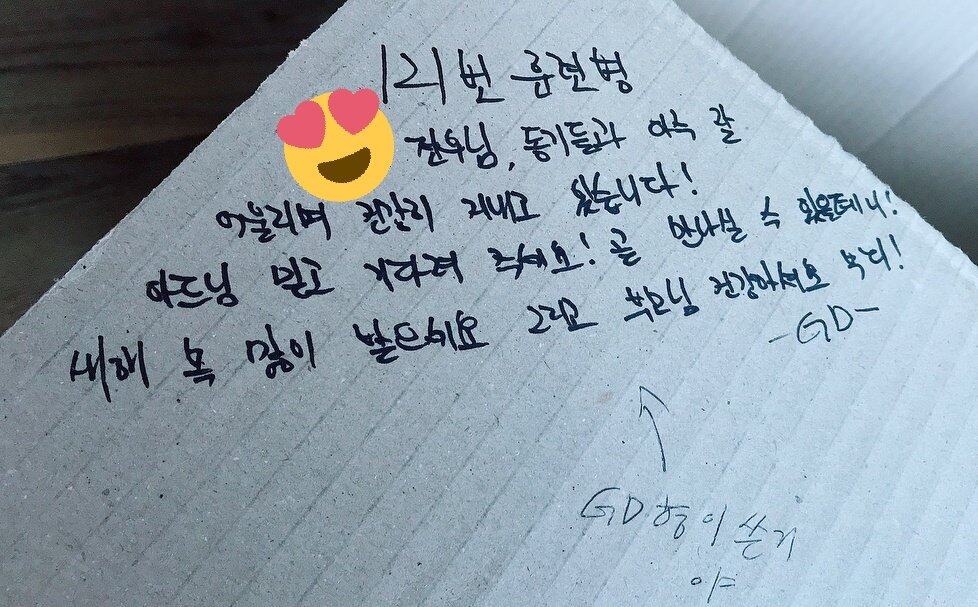 121번 훈련병
전우님, 동기들과 아주 잘
어울리며 건강히 지내고 있습니다!
아드님 믿고 기다려 주세요! 곧 만나실 수 있을테니!
새해 복 많이 받으세요 그리고 부모님 건강하셔요 부디!
-GD-
GD형이 쓴거
야